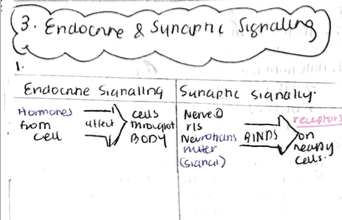 3. Endocrine & Synaptic Signaling
1.
Endocrine Signalling
Hormones from cell affect cells throughout BODY
Synaptic signally.
Nerve
rls
Neurotransmitter
(signal)
BINDS
receptors
on
nearby
cells.